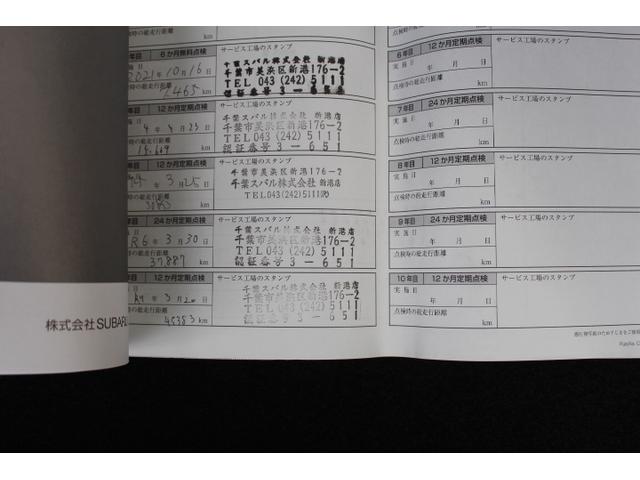 6か月無料点検
サービス工場のスタンプ
2021 年 10 月 16 日
点検時の総走行距離
km
千葉スバル株式会社 新港店
千葉市美浜区新港176-2
TEL 043 (242) 5111
年目 12か月定期点検
サービス工場のスタンプ
4 年 4 月 23 日
km
千葉スバル株式会社 新港店
千葉市美浜区新港176-2
TEL 043 (242) 5111
認証番号 3-651
年目 12か月定期点検
サービス工場のスタンプ
年 3 月 25 日
km
千葉市美浜区新港176-2
千葉スバル株式会社 新港店
TEL043(242)5111㈹
年目 24か月定期点検
サービス工場のスタンプ
R6 年 3 月 30 日
点検時の総走行距離
37887 km
千葉スバル株式会社 新港店
千葉市美浜区新港176-2
TEL 043 (242) 5111
認証番号 3-651
年目 12か月定期点検
サービス工場のスタンプ
点検時の総走行距離
45383 km
千葉スバル株式会社 新港店
千葉市美浜区新港176-2
TEL 043 (242) 5111
認証番号 3-651
6年目 12か月定期点検
サービス工場のスタンプ
実施日
年 月 日
点検時の総走行距離
km
7年目 24か月定期点検
サービス工場のスタンプ
実施日
年 月 日
点検時の総走行距離
km
8年目 12か月定期点検
サービス工場のスタンプ
実施日
年 月 日
点検時の総走行距離
km
9年目 24か月定期点検
サービス工場のスタンプ
実施日
年 月 日
点検時の総走行距離
km
10年目 12か月定期点検
サービス工場のスタンプ
実施日
年 月 日
点検時の総走行距離
km
株式会社 SUBARU